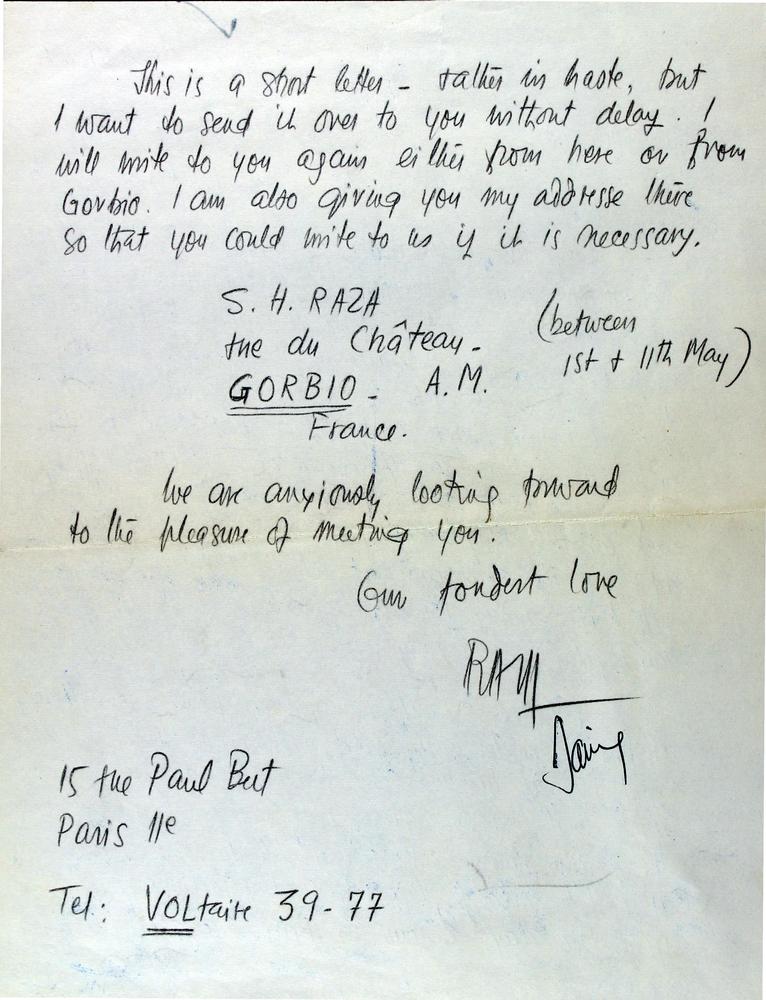 This is a short letter - rather in haste, but
I want to send it over to you without delay. I
will write to you again either from here or from
Gorbio. I am also giving you my addresse there
so that you could write to us if it is necessary.
S. H. RAZA
rue du Château.
GORBIO - A.M.
France.
(between
1st + 11th May)
We are anxiously looking forward
to the pleasure of meeting you.
Our fondest love
15 rue Paul Bert
Paris 11e
Tel: VOLtaire 39-77